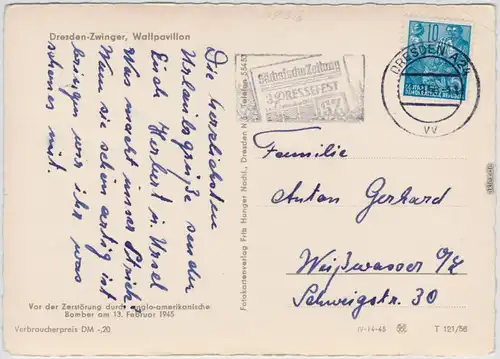 Dresden-Zwinger, Wallpavillon
Die herzlichsten
Urlaubsgrüße senden
Euch Herbert u. Ursel
Was macht unser Strich?
Wenn sie schön artig ist
bringen wir ihr was
schönes mit.
Vor der Zerstörung durch anglo-amerikanische
Bomber am 13. Februar 1945
Verbraucherpreis DM -,20
Fotokartenverlag Fritz Hunger Nachf., Dresden N Telefon 55453
Sächsische Zeitung
3. PRESSEFEST
10
DRESDEN A24
vv
Familie
Anton Gerhard
Weißwasser O/L
Schweigstr. 30
IV-14-45
T 121/56